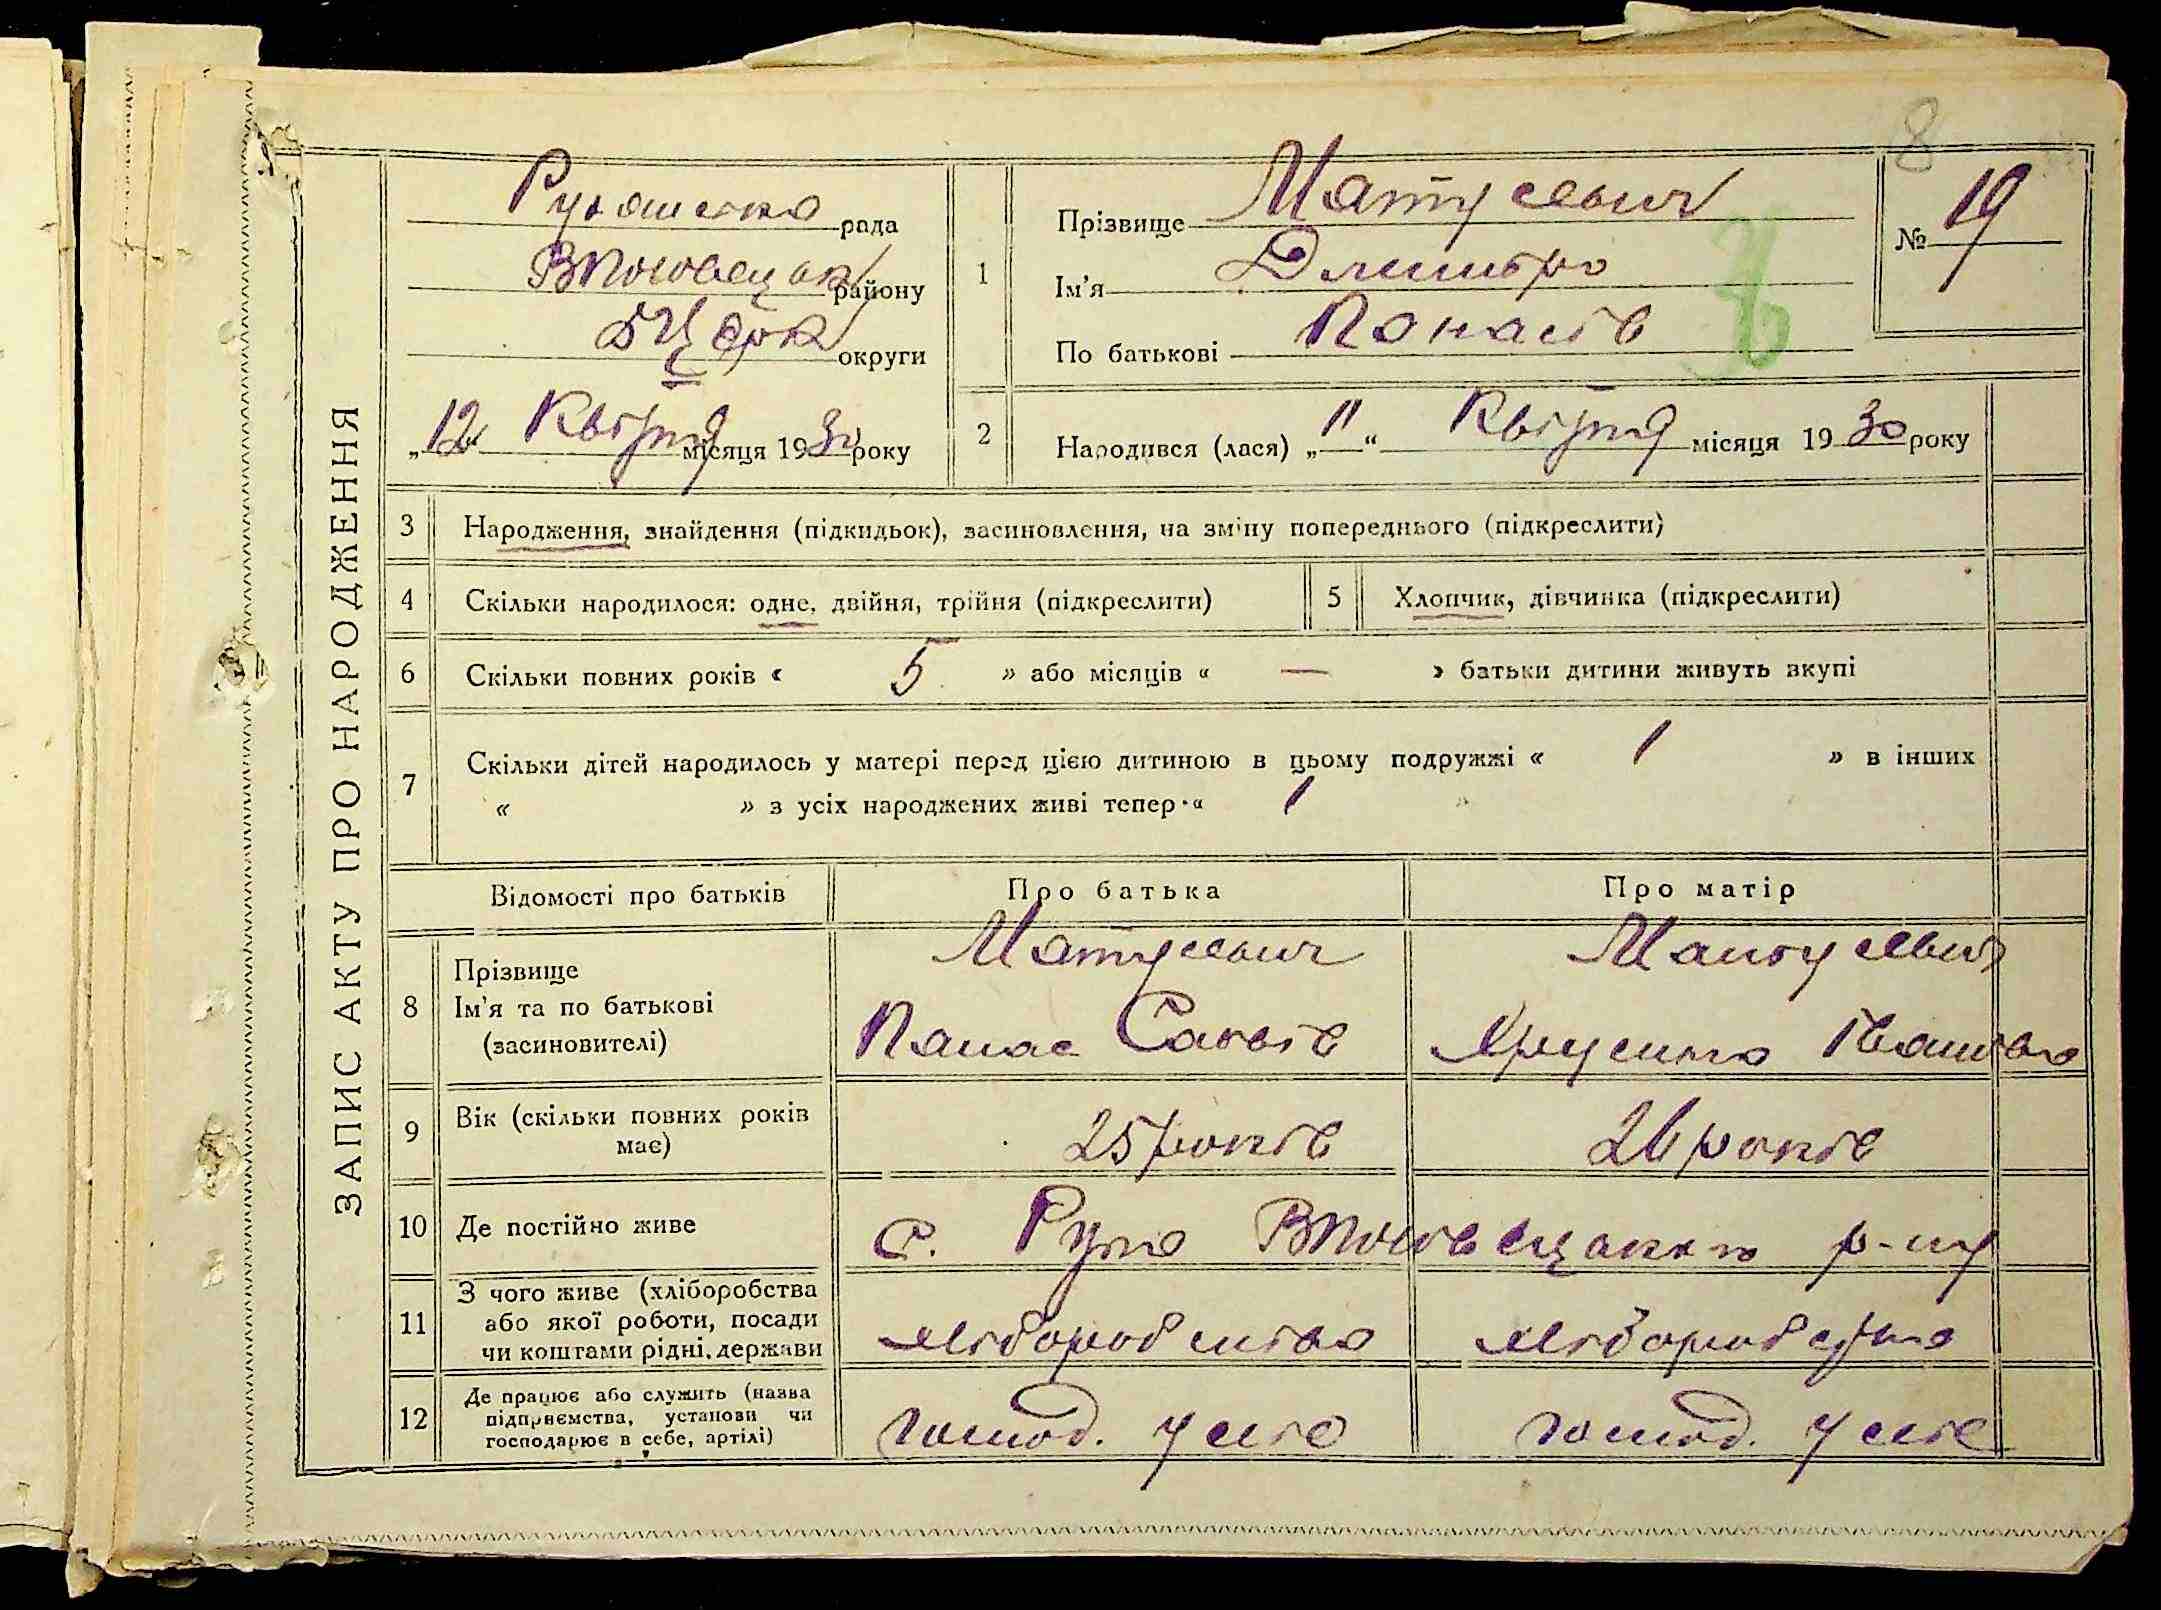 8
ЗАПИС АКТУ ПРО НАРОДЖЕННЯ
рада
району
БЦерк округи
„12“ Квітня місяця 1930 року
1
Прізвище Матусевич
Ім’я Дмитро
По батькові Панасів
№ 19
2
Народився (лася) „11“ Квітня місяця 1930 року
3 Народження, знайдення (підкидьок), засиновлення, на зміну попереднього (підкреслити)
4 Скільки народилося: одне, двійня, трійня (підкреслити)
5 Хлопчик, дівчинка (підкреслити)
6 Скільки повних років « 5 » або місяців « — » батьки дитини живуть вкупі
7 Скільки дітей народилось у матері перед цією дитиною в цьому подружжі « 1 » в інших
« » з усіх народжених живі тепер « 1 »
Відомості про батьків
Про батька
Про матір
8
Прізвище
Ім’я та по батькові
(засиновителі)
Матусевич
Панас Савів
Матусевич
Іванівна
9
Вік (скільки повних років
має)
25 років
26 років
10 Де постійно живе
с. Р-ну
11
З чого живе (хліборобства
або якої роботи, посади
чи коштами рідні, держави
хліборобства
хліборобства
12
Де працює або служить (назва
підприємства, установи чи
господарює в себе, артілі)
господ. у селі
господ. у селі